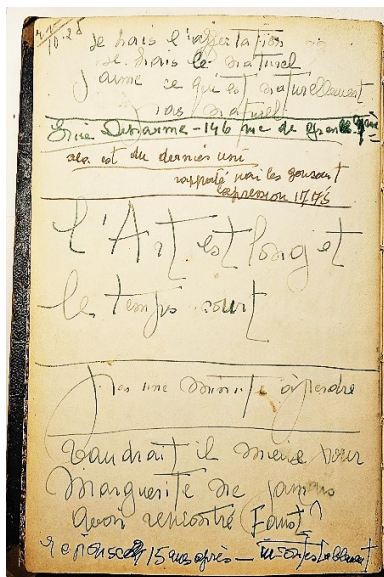 22
10-25
Je hais l'affectation
Je hais le naturel
J'aime ce qui est naturellement
pas naturel
- 146 rue de
cela est du dernier uni
rapporté par les
expression 1775
l'Art est long et
le temps court
pas une minute à perdre
Vaudrait il mieux pour
Marguerite ne jamais
avoir rencontré Faust?
Réponse 15 ans après - incontestablement